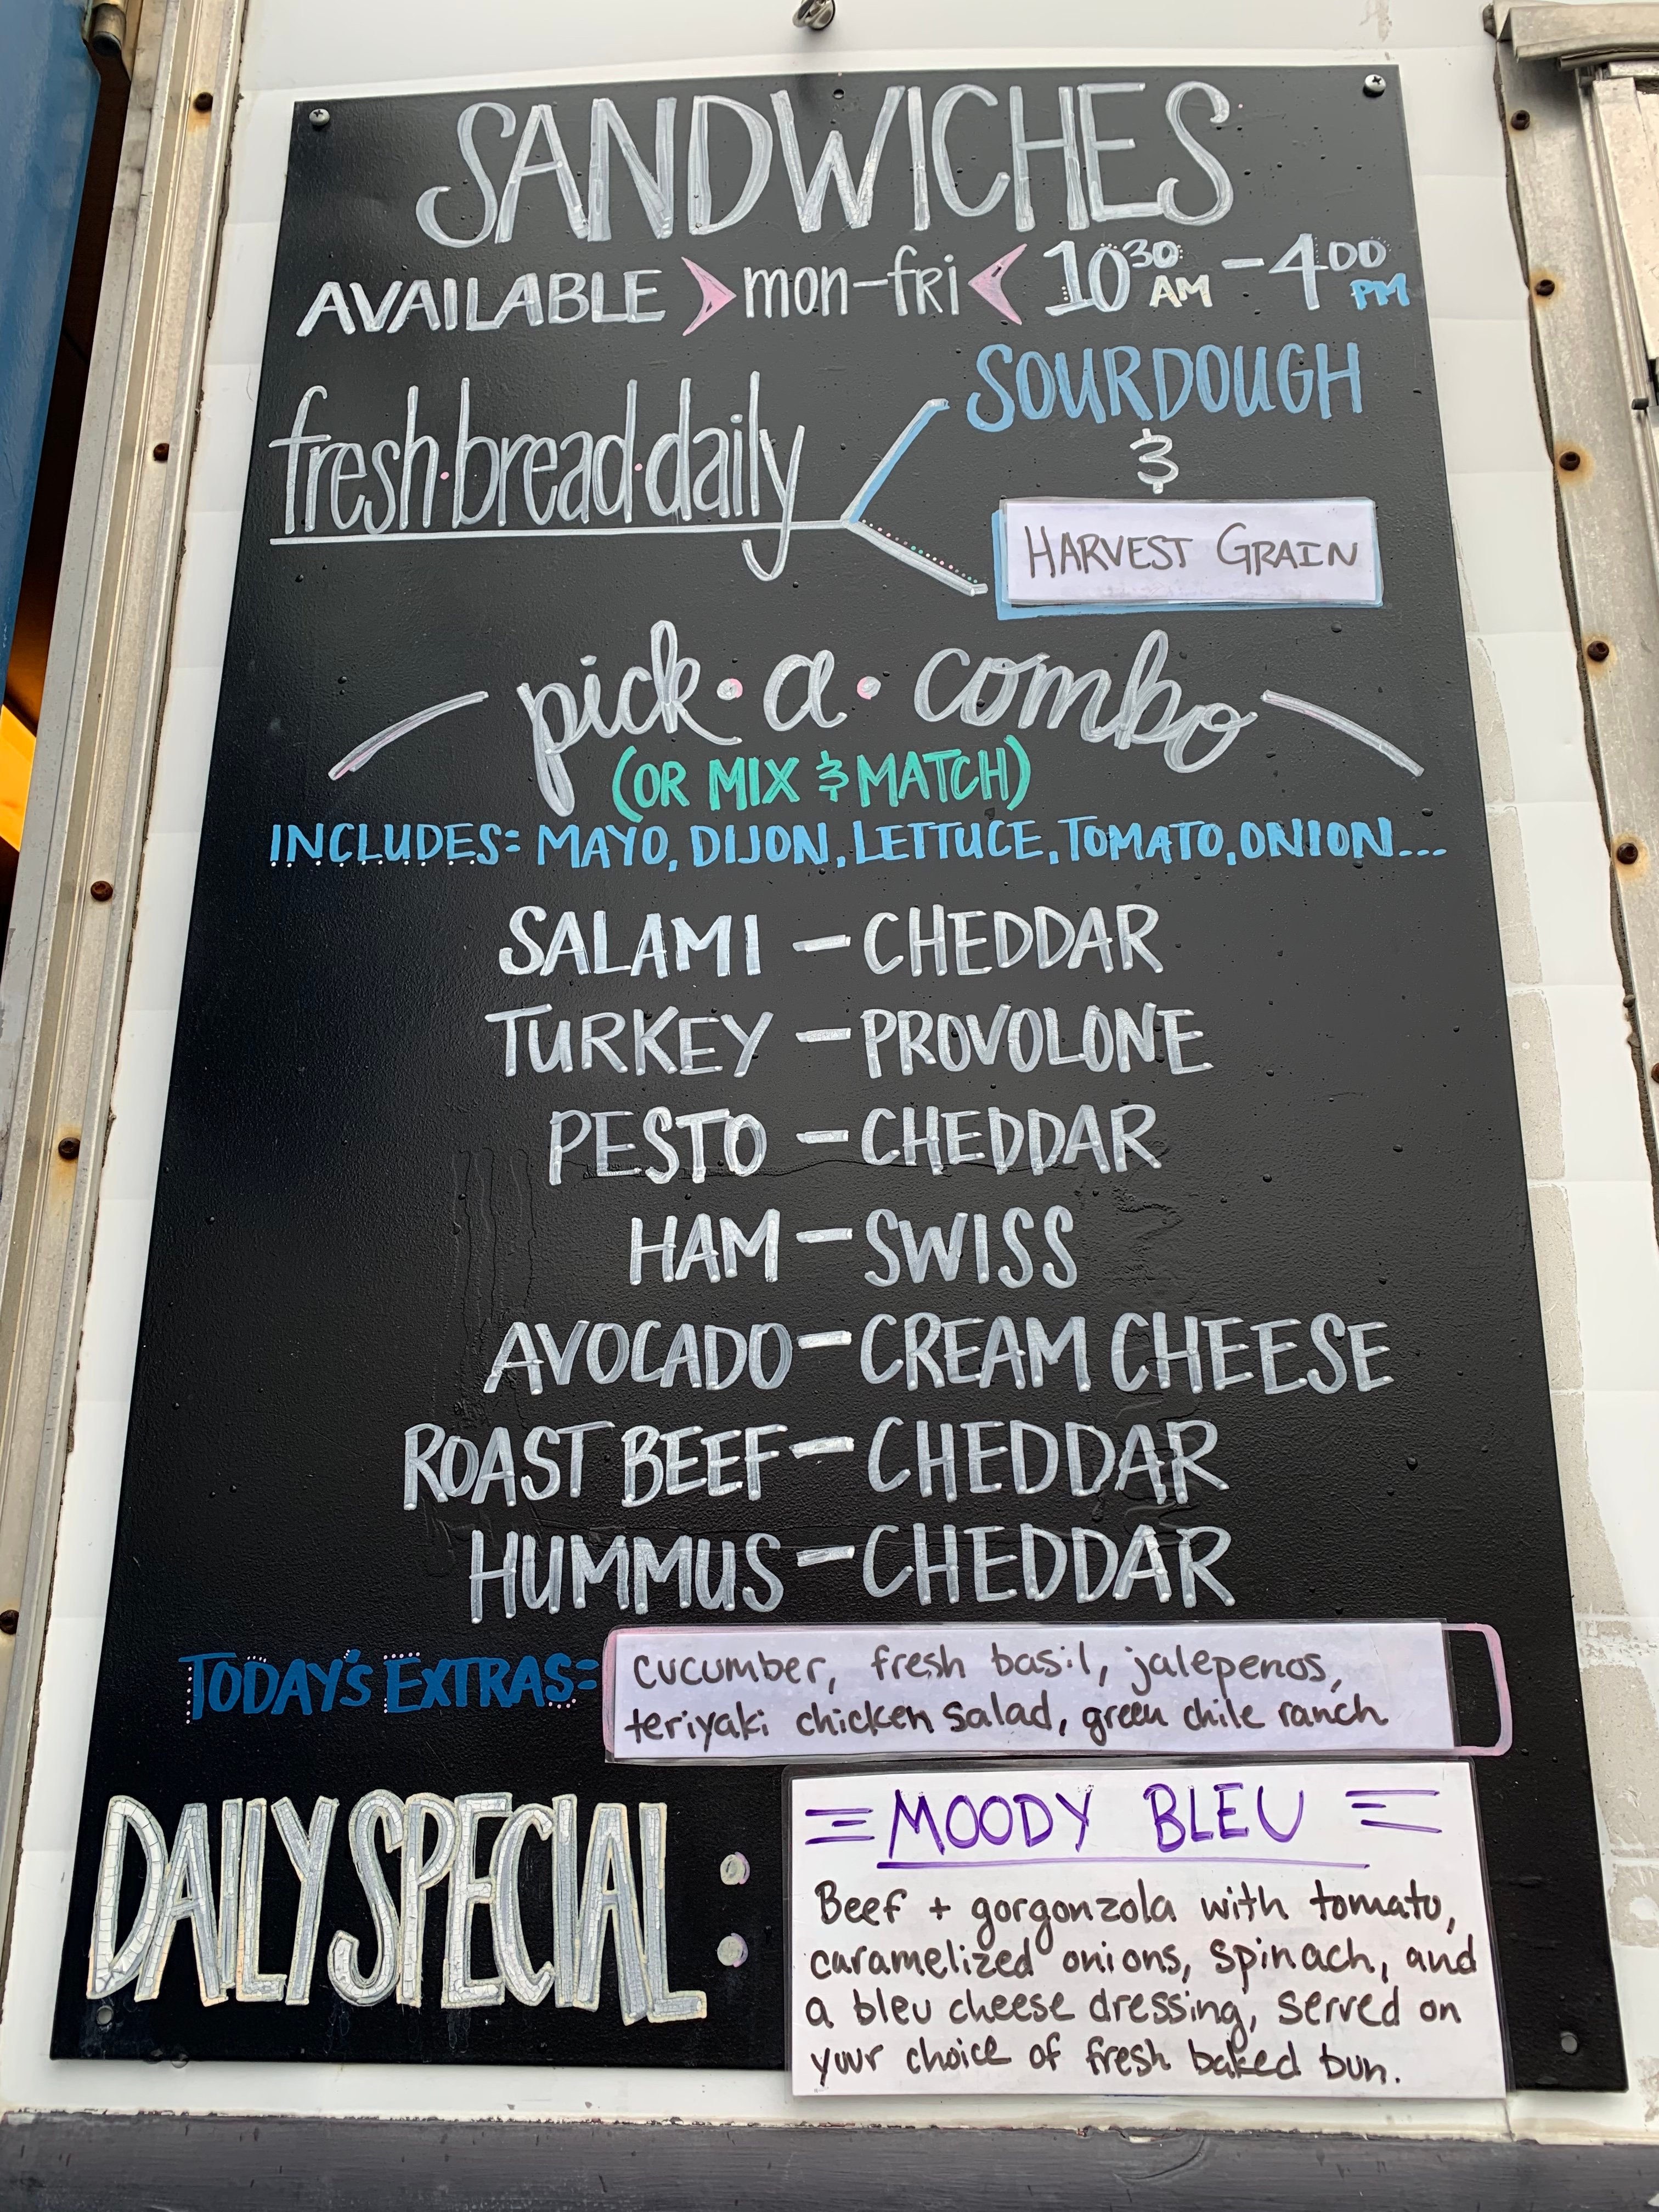 SANDWICHES
AVAILABLE mon-fri 10 30 AM - 4 00 PM
fresh·bread·daily
SOURDOUGH
&
HARVEST GRAIN
pick·a·combo
(OR MIX & MATCH)
INCLUDES: MAYO, DIJON, LETTUCE, TOMATO, ONION...
SALAMI - CHEDDAR
TURKEY - PROVOLONE
PESTO - CHEDDAR
HAM - SWISS
AVOCADO - CREAM CHEESE
ROAST BEEF - CHEDDAR
HUMMUS - CHEDDAR
TODAY'S EXTRAS:
cucumber, fresh basil, jalepenos,
teriyaki chicken salad, green chile ranch
DAILY SPECIAL:
MOODY BLEU
Beef + gorgonzola with tomato,
caramelized onions, spinach, and
a bleu cheese dressing, served on
your choice of fresh baked bun.